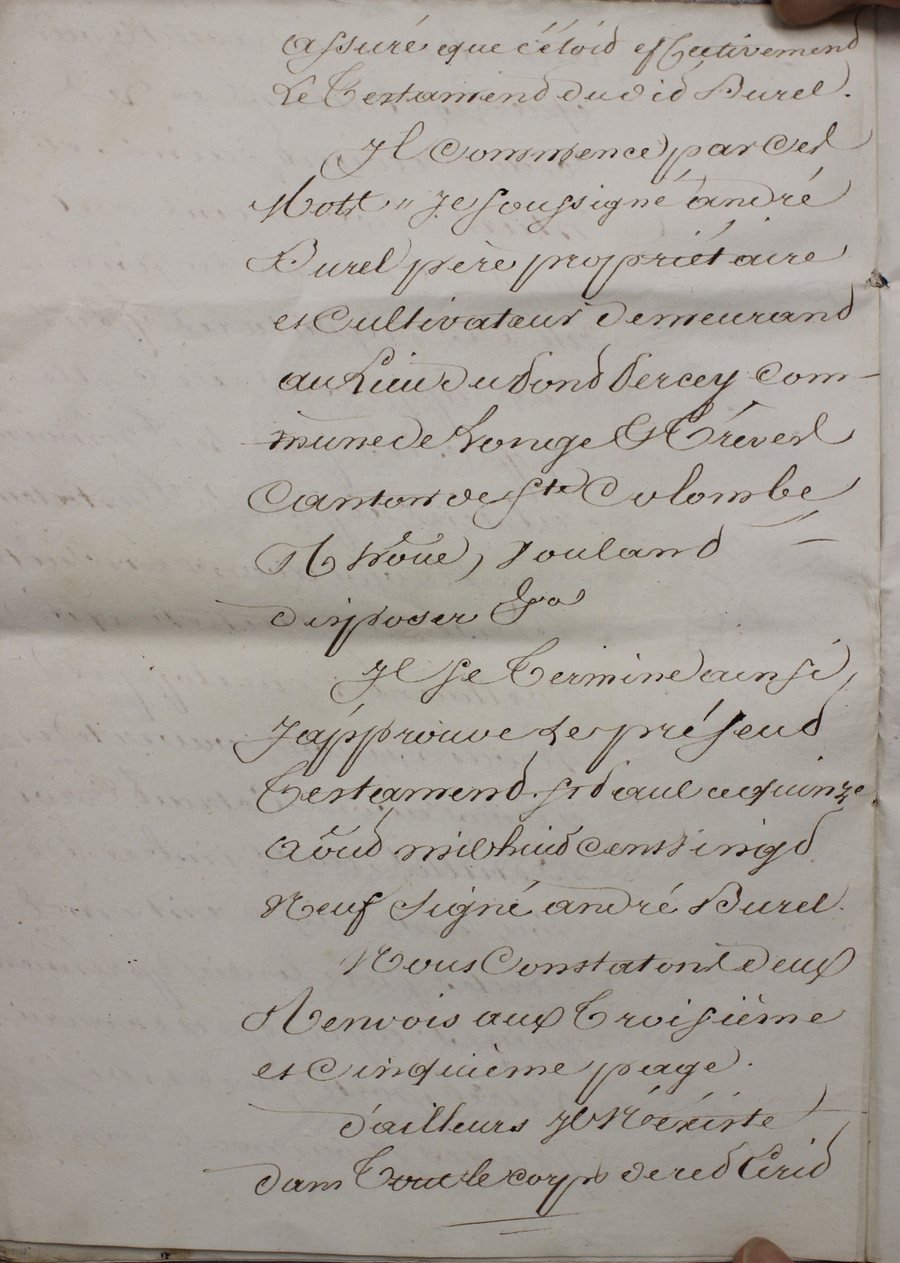 assuré que c'étoit effectivement
Le Testament dudit Burel.
Il Commence par Ces
Mots " Je soussigné andré
Burel père propriétaire
et Cultivateur Demeurant
au Lieu du fond Percey Com-
mune de Longe & Trèves
Canton de Ste Colombe
Rhône, voulant
disposer &ca
Il Se Termine ainsi,
J'approuve Le présent
Testament. fait Le quinze
août mil huit Cent vingt
Neuf Signé andré Burel.
Nous Constatons Deux
Renvois aux Troisième
et Cinquième page.
d'ailleurs Il N'éxiste
dans Tout le corps de cet Écrit